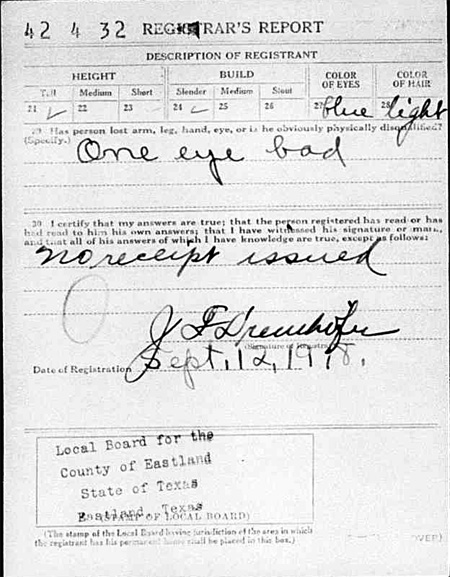 42 4 32 REGISTRAR'S REPORT
DESCRIPTION OF REGISTRANT
HEIGHT BUILD COLOR OF EYES COLOR OF HAIR
Tall Medium Short Slender Medium Stout
21 ✓ 22 23 24 ✓ 25 26 27 blue 28 light
29 Has person lost arm, leg, hand, eye, or is he obviously physically disqualified?
(Specify.) One eye bad
30 I certify that my answers are true; that the person registered has read or has
had read to him his own answers; that I have witnessed his signature or mark,
and that all of his answers of which I have knowledge are true, except as follows:
No receipt issued
J F
(Signature of Registrar)
Date of Registration Sept. 12, 1918.
Local Board for the
County of Eastland
State of Texas
Eastland, Texas
(STAMP OF LOCAL BOARD)
(The stamp of the Local Board having jurisdiction of the area in which
the registrant has his permanent home shall be placed in this box.)
(OVER)